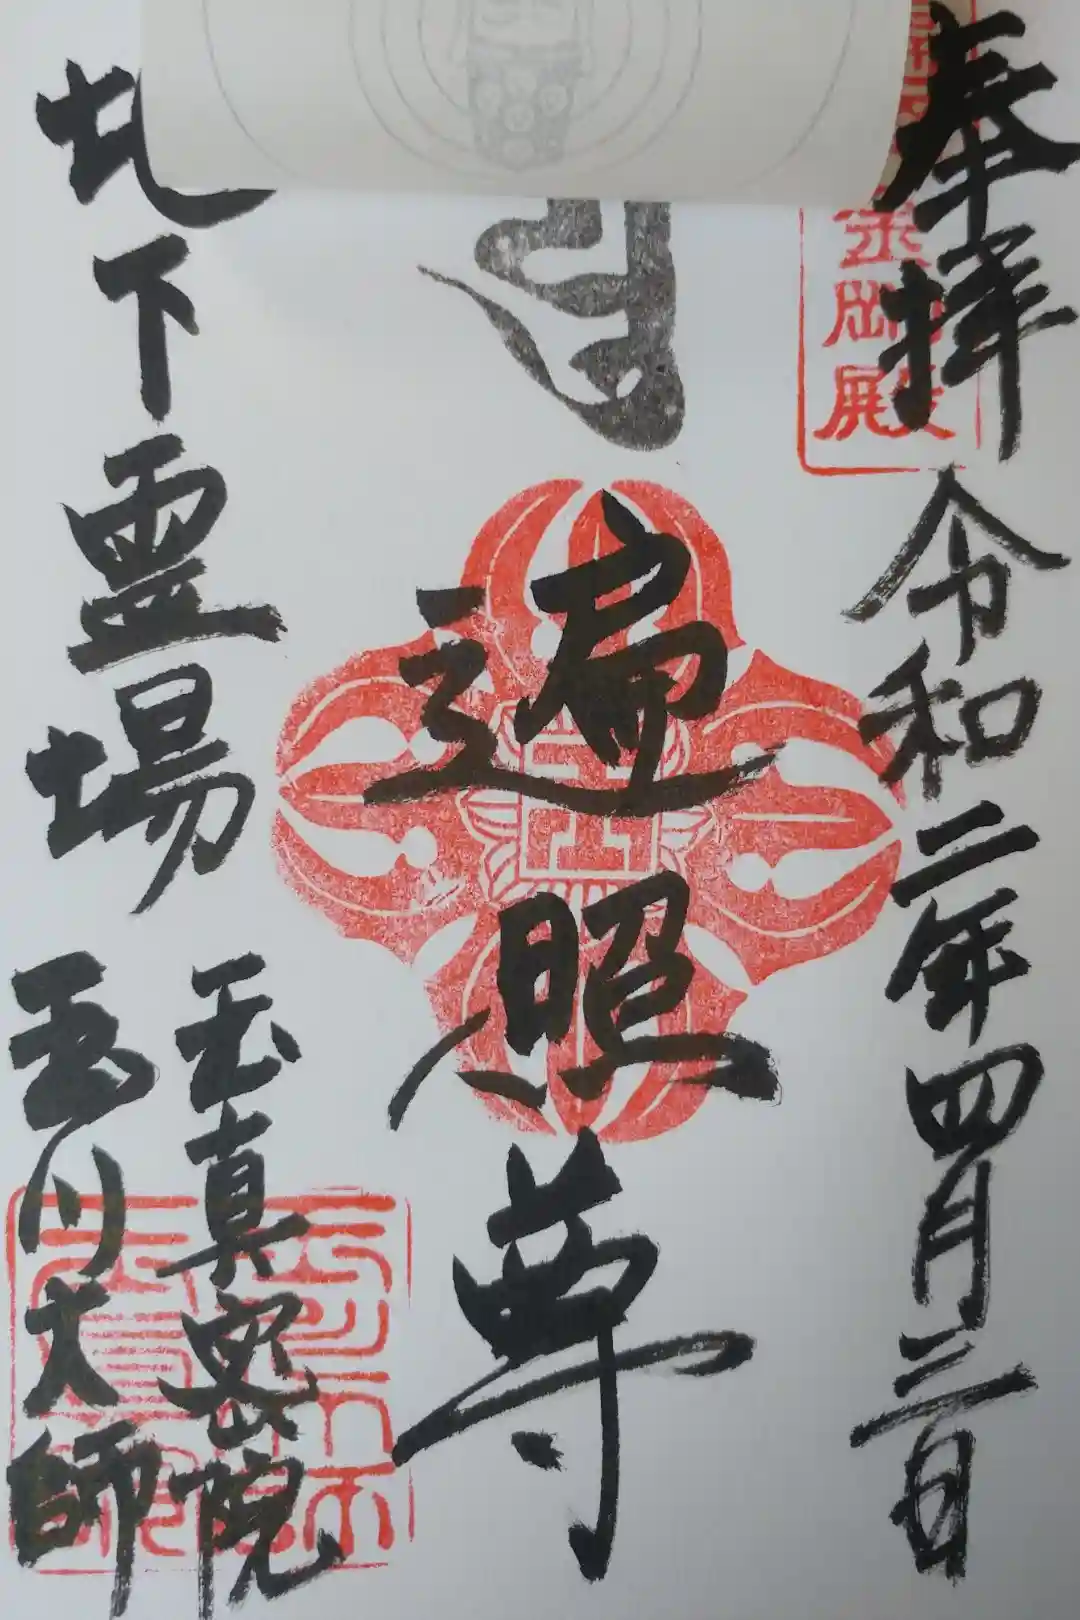 奉拝
令和二年四月三日
金剛殿
遍照尊
地下霊場
玉真密院
玉川大師